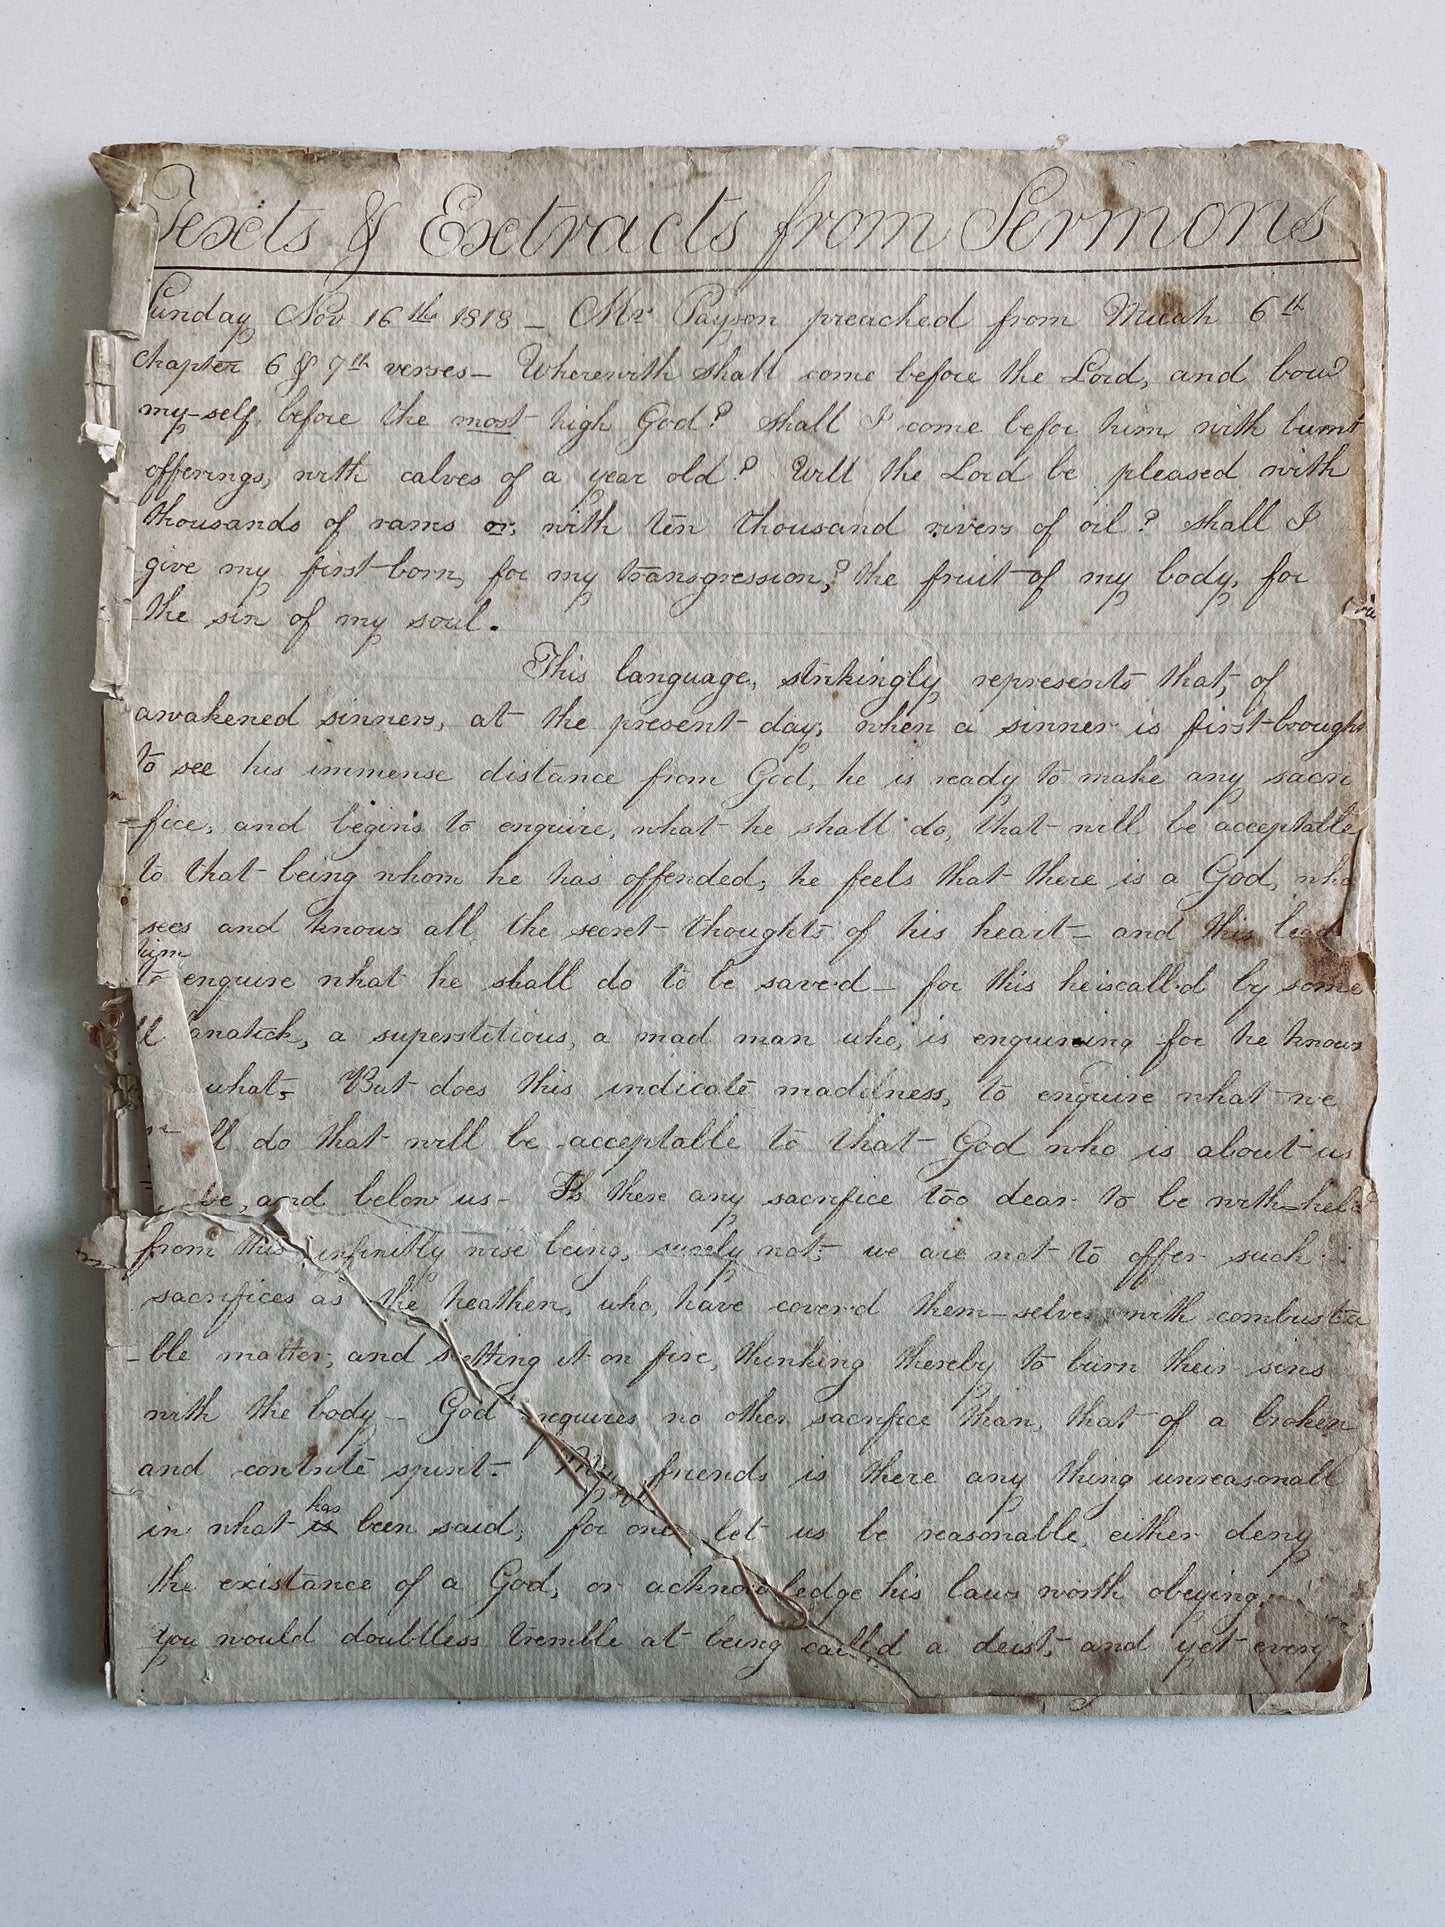 Texts & Extracts from Sermons
Sunday Nov 16th 1818 - Mr Payson preached from Micah 6th
chapter 6 & 7th verses - Wherewith shall come before the Lord, and bow
my-self before the most high God? shall I come befor him with burnt
offerings, with calves of a year old? Will the Lord be pleased with
thousands of rams or, with ten thousand rivers of oil? shall I
give my first born, for my transgression,? the fruit of my body, for
the sin of my soul.
This language, strikingly represents that, of
awakened sinners, at the present day, when a sinner is first brought
to see his immense distance from God, he is ready to make any sacri
-fice, and begins to enquire, what he shall do, that will be acceptable
to that being whom he has offended, he feels that there is a God, who
sees and knows all the secret thoughts of his heart - and this lead
him
to enquire what he shall do to be save'd - for this he is call'd by some
anatick, a superstitious, a mad man who, is enquiring for he knows
what - But does this indicate maddness, to enquire what we
ll do that will be acceptable to that God who is about us
be, and below us - Is there any sacrifice too dear to be with-held
from this infinitly wise being, surely not; we are not to offer such
sacrifices as the heathen, who, have cover'd them-selves with combusta
-ble matter, and setting it on fire, thinking thereby to burn their sins
with the body - God requires no other sacrifice than, that of a broken
and contrite spirit - My friends is there any thing unreasonall
has
in what is been said, for once let us be reasonable, either deny
the existance of a God, or acknowledge his laws worth obeying,
you would doubtless tremble at being call'd a deist, and yet every